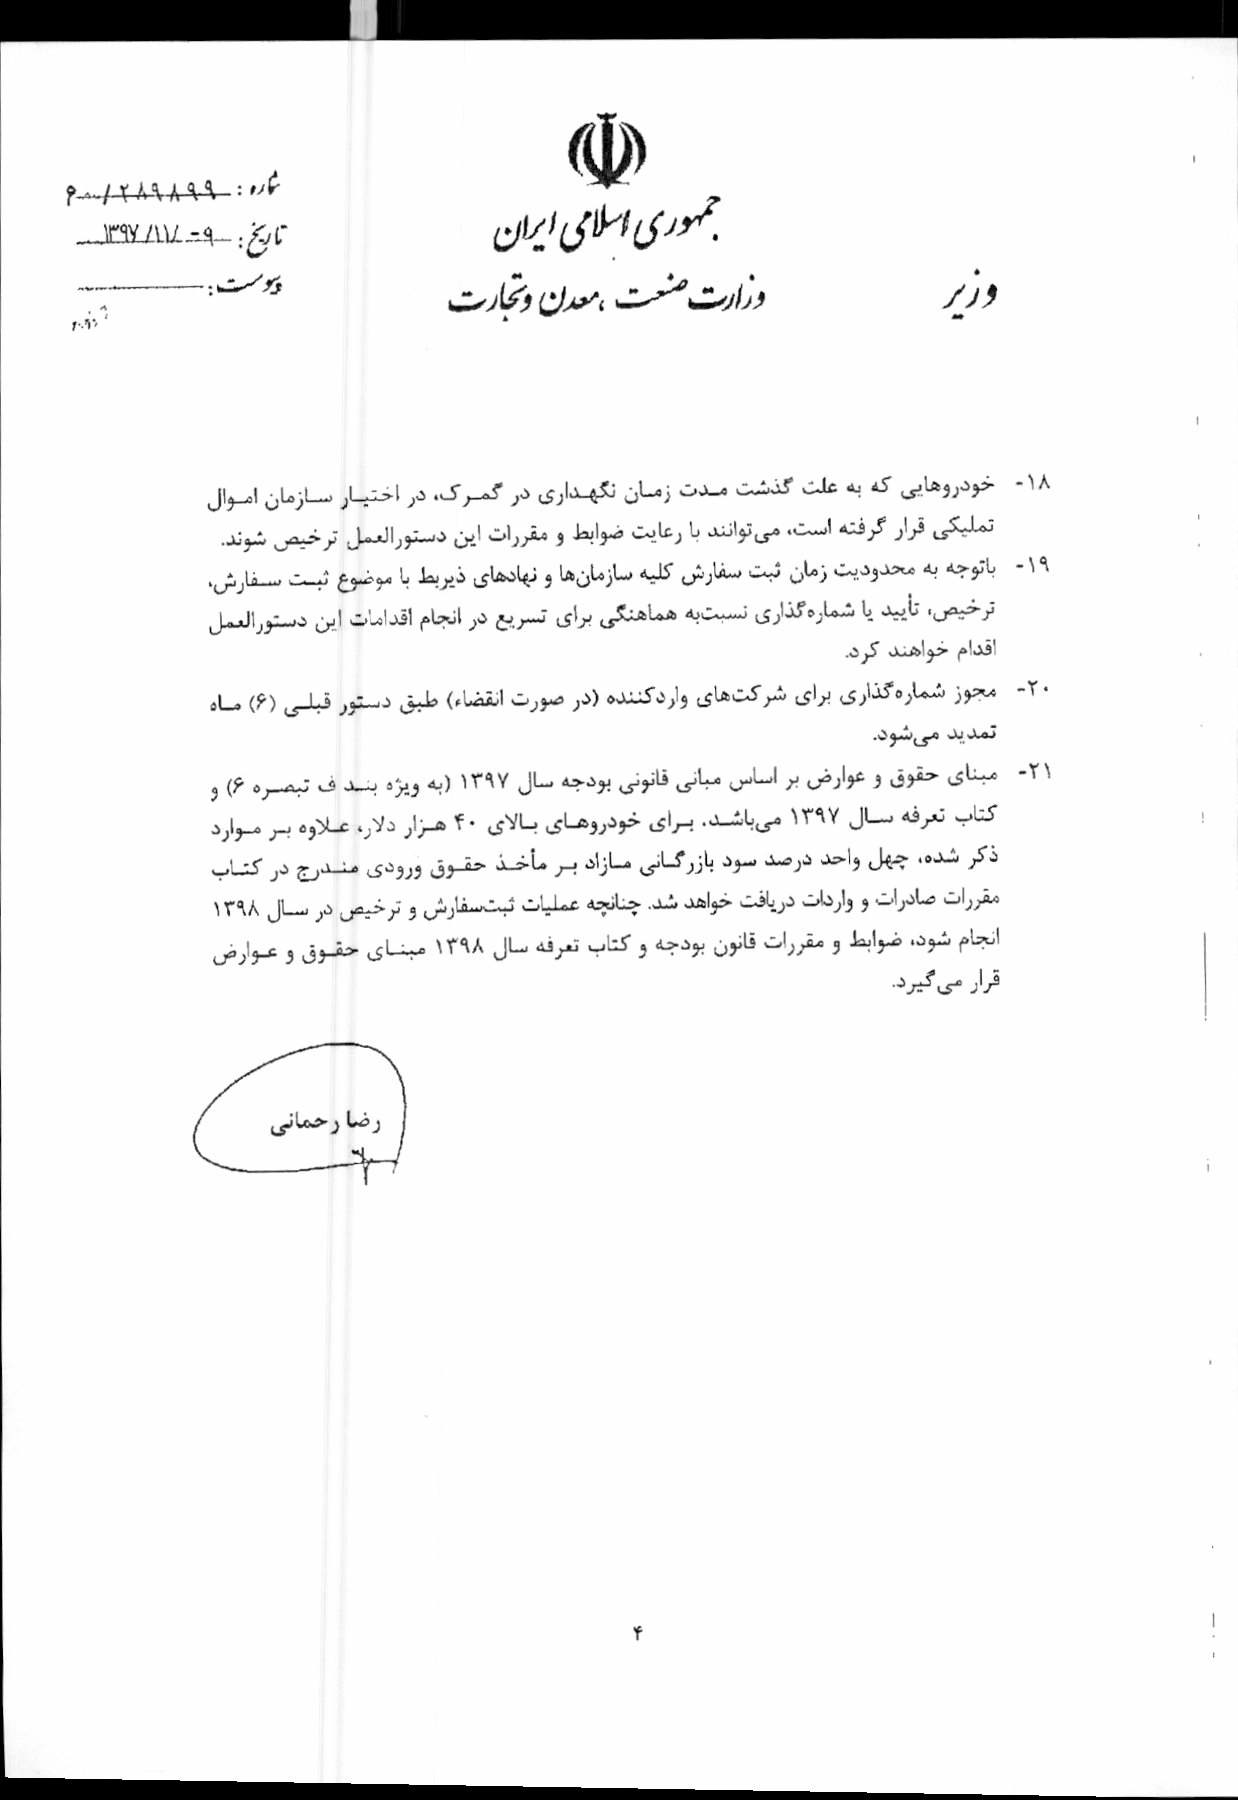 جمهوری اسلامی ایران
وزارت صنعت، معدن و تجارت
وزیر
شماره: ۶۰/۲۸۹۸۹۹
تاریخ: ۱۳۹۷/۱۱/۰۹
پیوست:
۱۸- خودروهایی که به علت گذشت مدت زمان نگهداری در گمرک، در اختیار سازمان اموال
تملیکی قرار گرفته است، می‌توانند با رعایت ضوابط و مقررات این دستورالعمل ترخیص شوند.
۱۹- باتوجه به محدودیت زمان ثبت سفارش کلیه سازمان‌ها و نهادهای ذیربط با موضوع ثبت سفارش،
ترخیص، تأیید یا شماره‌گذاری نسبت‌به هماهنگی برای تسریع در انجام اقدامات این دستورالعمل
اقدام خواهند کرد.
۲۰- مجوز شماره‌گذاری برای شرکت‌های واردکننده (در صورت انقضاء) طبق دستور قبلی (۶) ماه
تمدید می‌شود.
۲۱- مبنای حقوق و عوارض بر اساس مبانی قانونی بودجه سال ۱۳۹۷ (به ویژه بند ف تبصره ۶) و
کتاب تعرفه سال ۱۳۹۷ می‌باشد. برای خودروهای بالای ۴۰ هزار دلار، علاوه بر موارد
ذکر شده، چهل واحد درصد سود بازرگانی مازاد بر مأخذ حقوق ورودی مندرج در کتاب
مقررات صادرات و واردات دریافت خواهد شد. چنانچه عملیات ثبت‌سفارش و ترخیص در سال ۱۳۹۸
انجام شود، ضوابط و مقررات قانون بودجه و کتاب تعرفه سال ۱۳۹۸ مبنای حقوق و عوارض
قرار می‌گیرد.
رضا رحمانی
۴